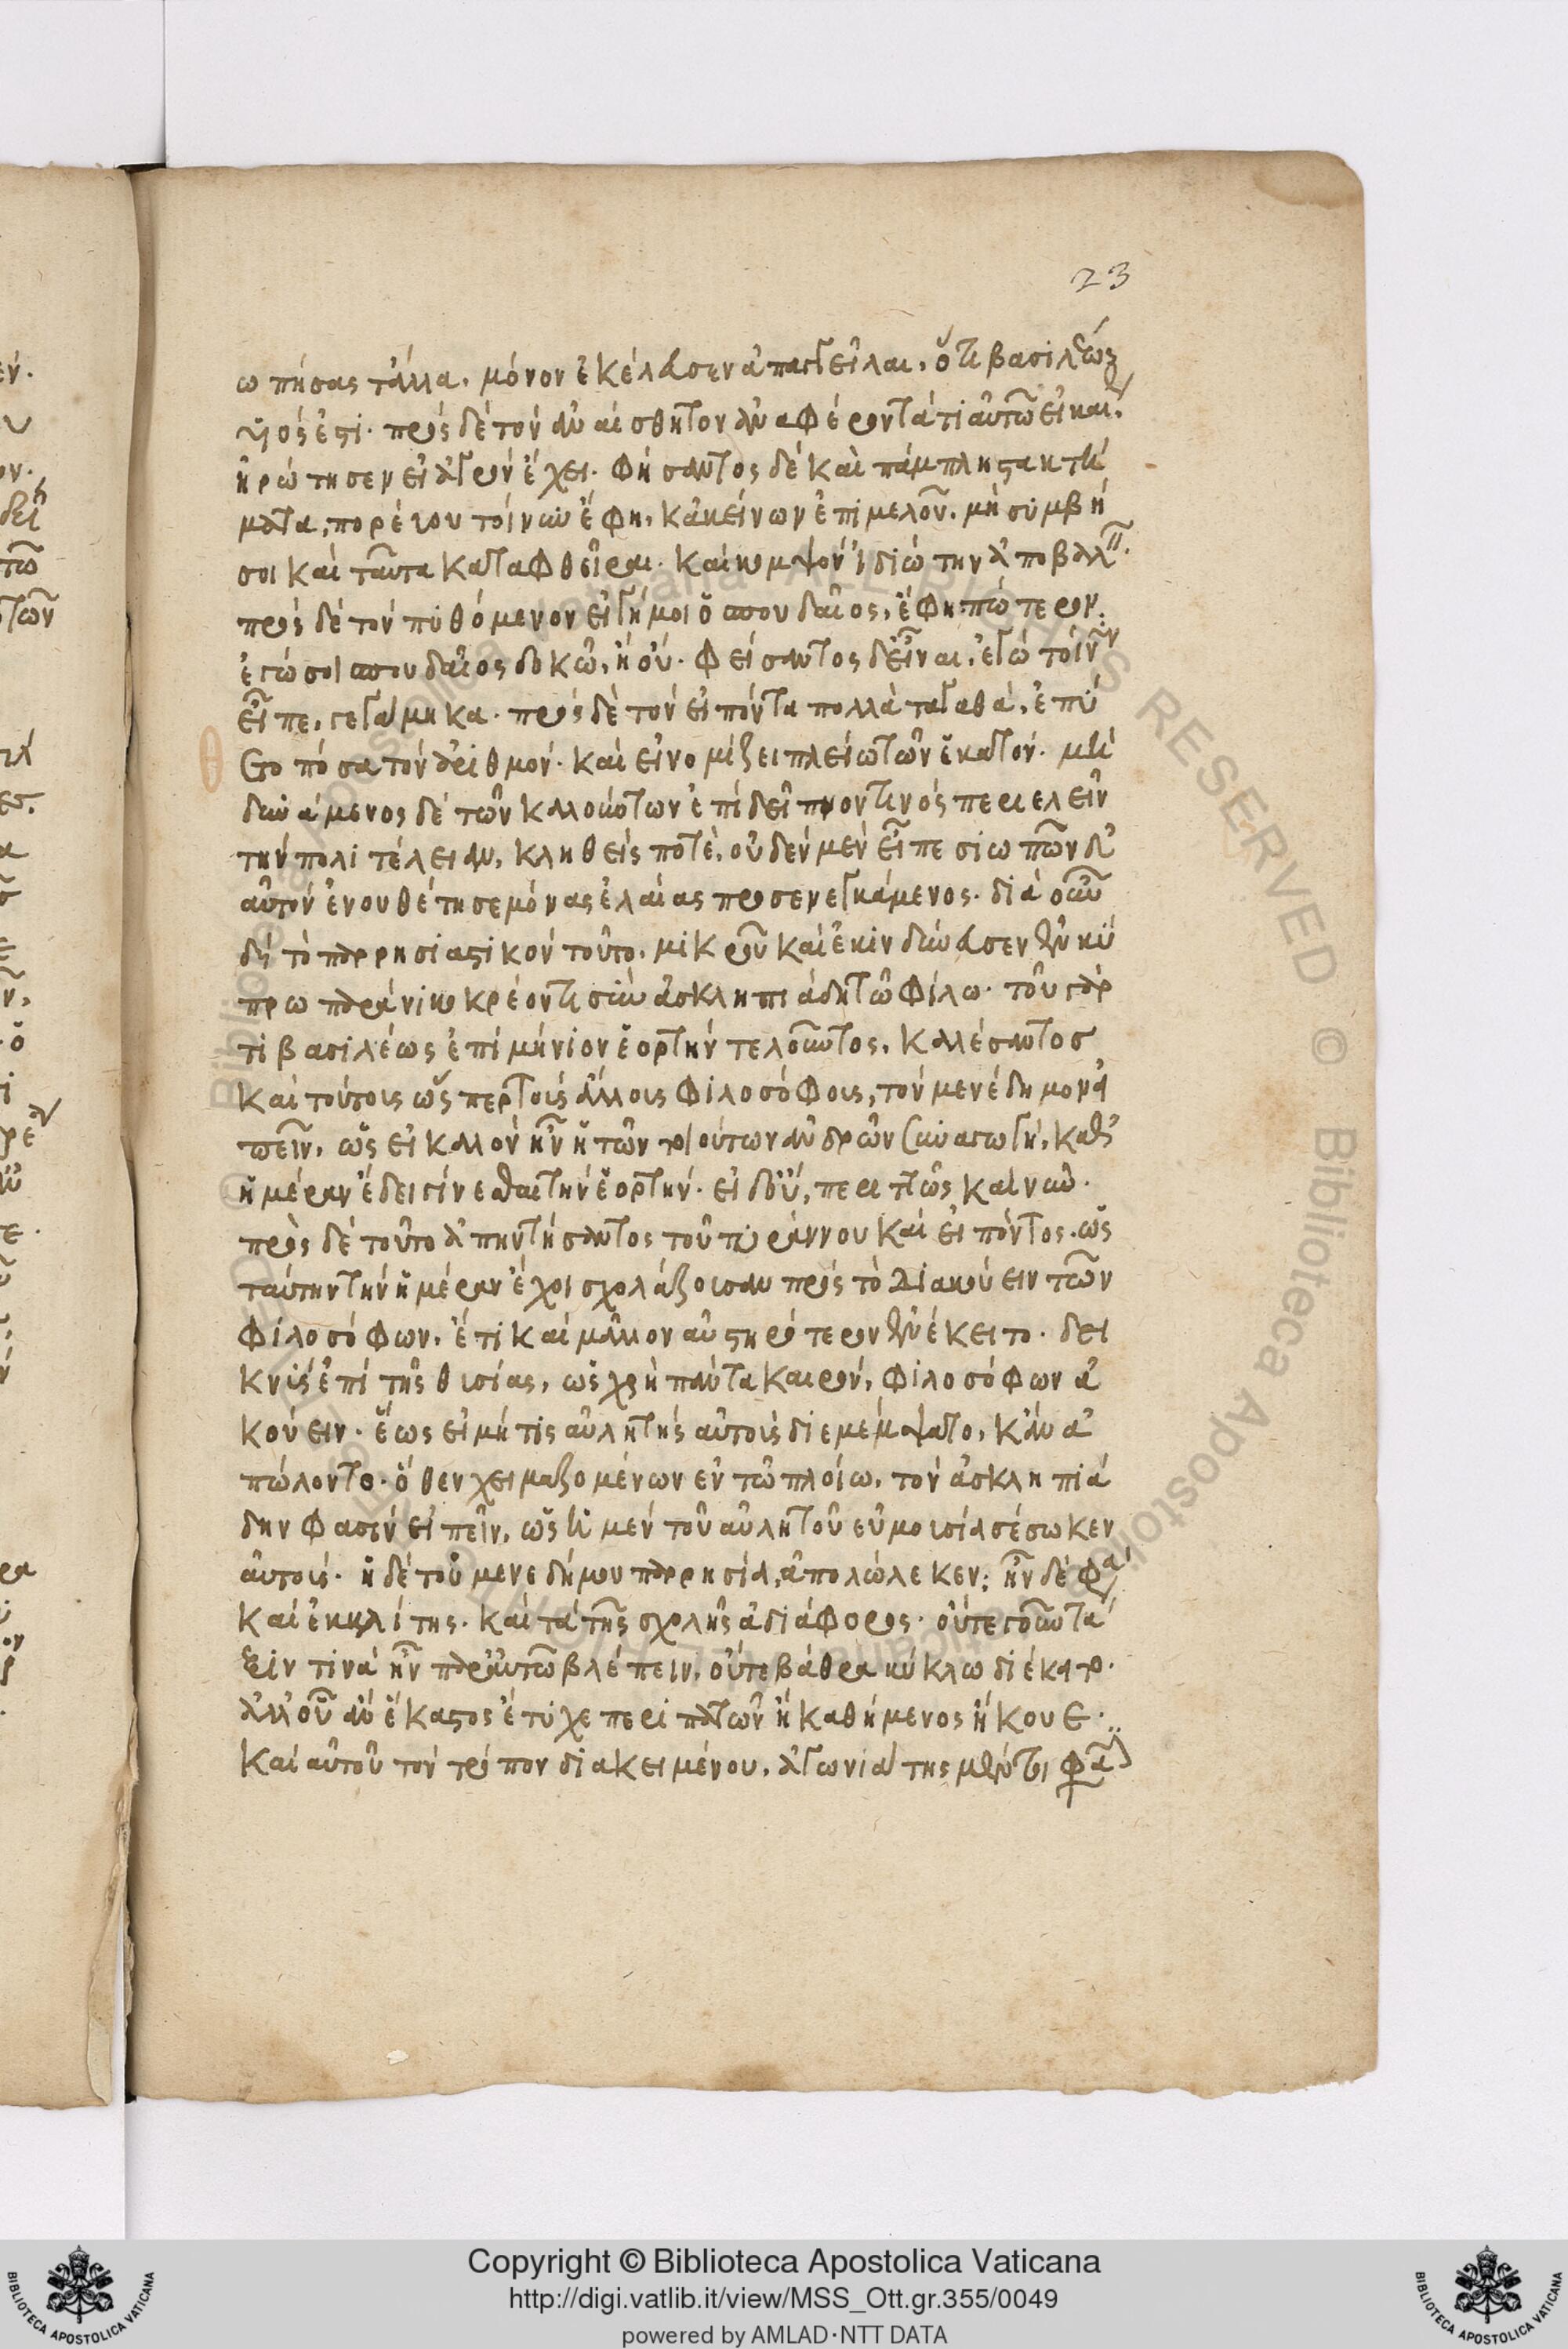 23
ωπήσας τἄλλα. μόνον ἐκέλευσεν ἀπαγγεῖλαι, ὅτι βασιλέως
υἱός ἐστι. πρὸς δὲ τὸν ἀναίσθητον ἀναφέροντά τι αὐτῷ εἰκαῖ
ἠρώτησεν εἰ ἀγρὸν ἔχει. φήσαντος δὲ καὶ πάμπληστα κτή
ματα, πορεύου τοίνυν ἔφη, κἀκείνων ἐπιμελοῦ. μὴ συμβῇ
σοι καὶ ταῦτα καταφθεῖραι. καὶ κομψὸν ἰδιώτην ἀποβαλ
πρὸς δὲ τὸν πυθόμενον εἰ γήμοι ὁ σπουδαῖος, ἔφη· πότερον
ἐγώ σοι σπουδαῖος δοκῶ, ἢ οὔ. φήσαντος δ' εἶναι, ἐγὼ τοίνυν
εἶπε, γεγάμηκα. πρὸς δὲ τὸν εἰπόντα πολλὰ τἀγαθά, ἐπύ
θετο πόσα τὸν ἀριθμόν. καὶ εἰ νομίζει πλείω τῶν ἑκατόν. μὴ
δυνάμενος δὲ τῶν καλούντων ἐπὶ δεῖπνον τινὸς περιελεῖν
τὴν πολιτέλειαν, κληθείς ποτε, οὐδὲν μὲν εἶπε σιωπῶν δ'
αὐτὸν ἐνουθέτησε μόνας ἐλαίας προσενεγκάμενος. διὰ οὖν
δὴ τὸ παρρησιαστικὸν τοῦτο, μικροῦ καὶ ἐκινδύνευσεν ἐν κύ
πρω παρὰ νικοκρέοντι σὺν ἀσκληπιάδη τῷ φίλω. τοῦ γάρ
τι βασιλέως ἐπιμήνιον ἑορτὴν τελοῦντος, καλέσαντος
καὶ τούτους ὥσπερ τοὺς ἄλλους φιλοσόφους, τὸν μενέδημον εἰ
πεῖν, ὡς εἰ καλὸν ἦν ἡ τῶν τοιούτων ἀνδρῶν συναγωγή, καθ'
ἡμέραν ἔδει γίνεσθαι τὴν ἑορτήν. εἰ δ' οὔ, περιττῶς καὶ νῦν.
πρὸς δὲ τοῦτο ἀπηντήσαντος τοῦ τυράννου καὶ εἰπόντος. ὡς
ταύτην τὴν ἡμέραν ἔχοι σχολάζουσαν πρὸς τὸ διακούειν τῶν
φιλοσόφων, ἔτι καὶ μᾶλλον αὐστηρότερον ἐνέκειτο. δει
κνὺς ἐπὶ τῆς θυσίας, ὡς χρὴ πάντα καιρόν, φιλοσόφων ἀ
κούειν. ἕως εἰ μή τις αὐλητὴς αὐτοὺς διεμέμψατο, κἂν ἀ
πώλοντο. ὅθεν χειμαζομένων ἐν τῷ πλοίω, τὸν ἀσκληπιά
δην φασὶν εἰπεῖν, ὡς ἡ μὲν τοῦ αὐλητοῦ εὐμουσία σέσωκεν
αὐτούς. ἡ δὲ τοῦ μενεδήμου παρρησία, ἀπολώλεκεν· ἦν δὲ φα
καὶ ἐκκλίτης. καὶ τὰ τῆς σχολῆς ἀδιάφορος. οὔτε γοῦν τά
ξιν τινὰ ἦν παρ' αὐτῷ βλέπειν, οὔτε βάθρα κύκλω διέκειτο.
ἀλλ' οὗ ἂν ἕκαστος ἔτυχε περιπατῶν ἢ καθήμενος ἤκουε.
καὶ αὐτοῦ τὸν τρόπον διακειμένου, ἀγωνιάτης μέντοι φα
Copyright © Biblioteca Apostolica Vaticana
http://digi.vatlib.it/view/MSS_Ott.gr.355/0049
powered by AMLAD·NTT DATA